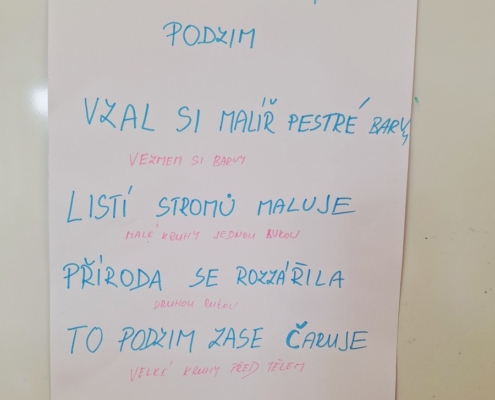 PODZIM
VZAL SI MALÍŘ PESTRÉ BARVY,
VEZMEM SI BARVY
LISTÍ STROMŮ MALUJE
MALÉ KRUHY JEDNOU RUKOU
PŘÍRODA SE ROZZÁŘILA
DRUHOU RUKOU
TO PODZIM ZASE ČARUJE
VELKÉ KRUHY PŘED TĚLEM